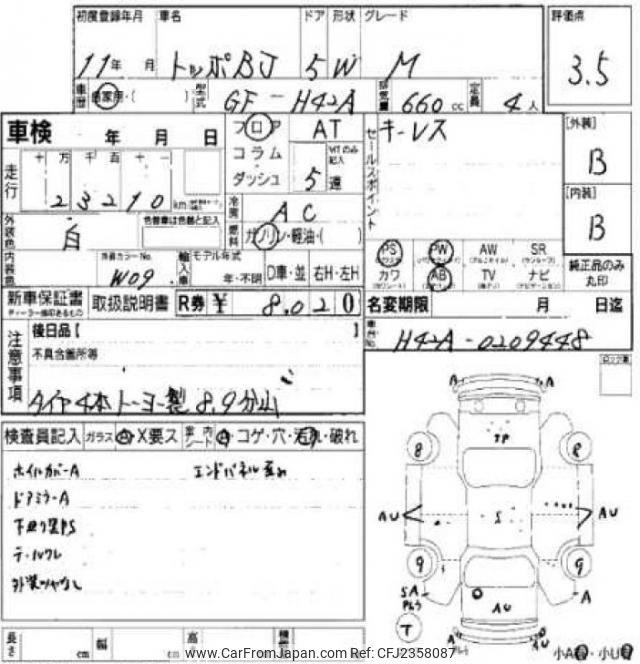 初度登録年月 車名 ドア 形状 グレード 評価点
11年 月 トッポBJ 5 W M 3.5
車歴 自家用・( ) 型式 GF-H42A 排気量 660 cc 定員 4人
車検 年 月 日 フロア AT セールスポイント キーレス [外装] B
走行 十万千百十一 コラム
ダッシュ 5速
23210 km
冷房 AC [内装] B
外装色 白 色替車は色替と記入 燃料 ガソリン・軽油・( )
PS PW AW SR
内装色 外装カラーNo. W09 輸入車 モデル年式 年・不明 D車・並 右H・左H
カワ AB TV ナビ 純正品のみ丸印
新車保証書 取扱説明書 R券 ¥ 8,020 名変期限 月 日迄
注意事項 後日品【 】 車台No. H42A-0209448
不具合箇所等
タイヤ4本トーヨー製8,9分山
検査員記入 ガラス A X要ス 室内シート A・コゲ・穴・汚れ・破れ
ホイルカバーA エンドパネル歪み
ドアミラーA
下廻り塗PS
テールワレ
外装ツヤなし
A A
TP
8 8
AU S AU
9 9
SA A
AU
T
長さ cm 幅 cm 高
www.CarFromJapan.com Ref: CFJ2358087
小A 小U